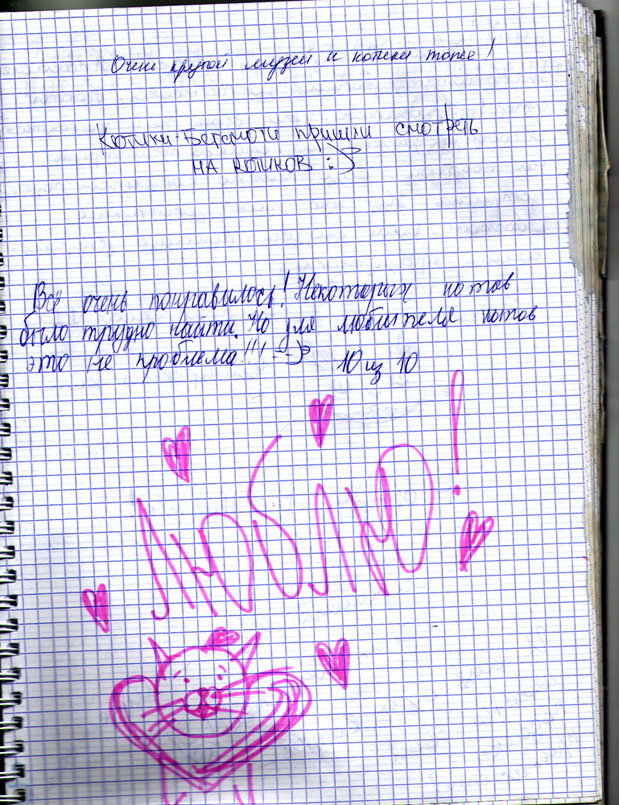 Очень крутой музей и котики тоже!
Котики-Бегемоти пришли смотреть
НА котиков :3
Всё очень понравилось! Некоторых котов
было трудно найти. Но для любителя котов
это не проблема!!! :-3 10 из 10
ЛЮБЛЮ!